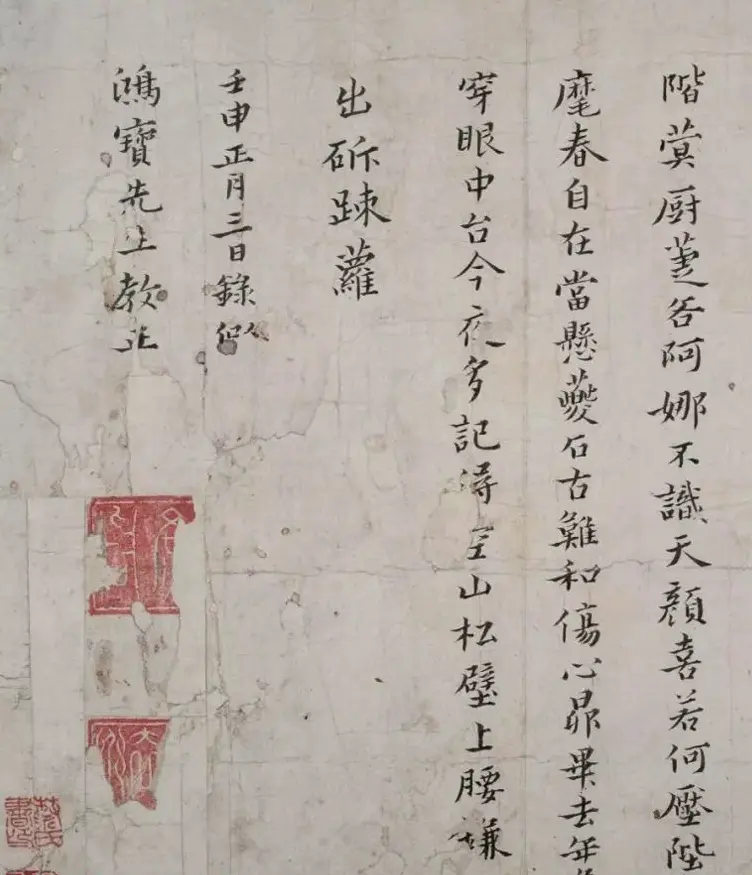 階蓂厨萐各阿娜不識天顏喜若何壓陛
麾春自在當懸夔石古難和傷心昴畢去年
穿眼中台今夜多記得空山松壁上腰鎌
出斫踈蘿
壬申正月三日錄似
鴻寶先生教正